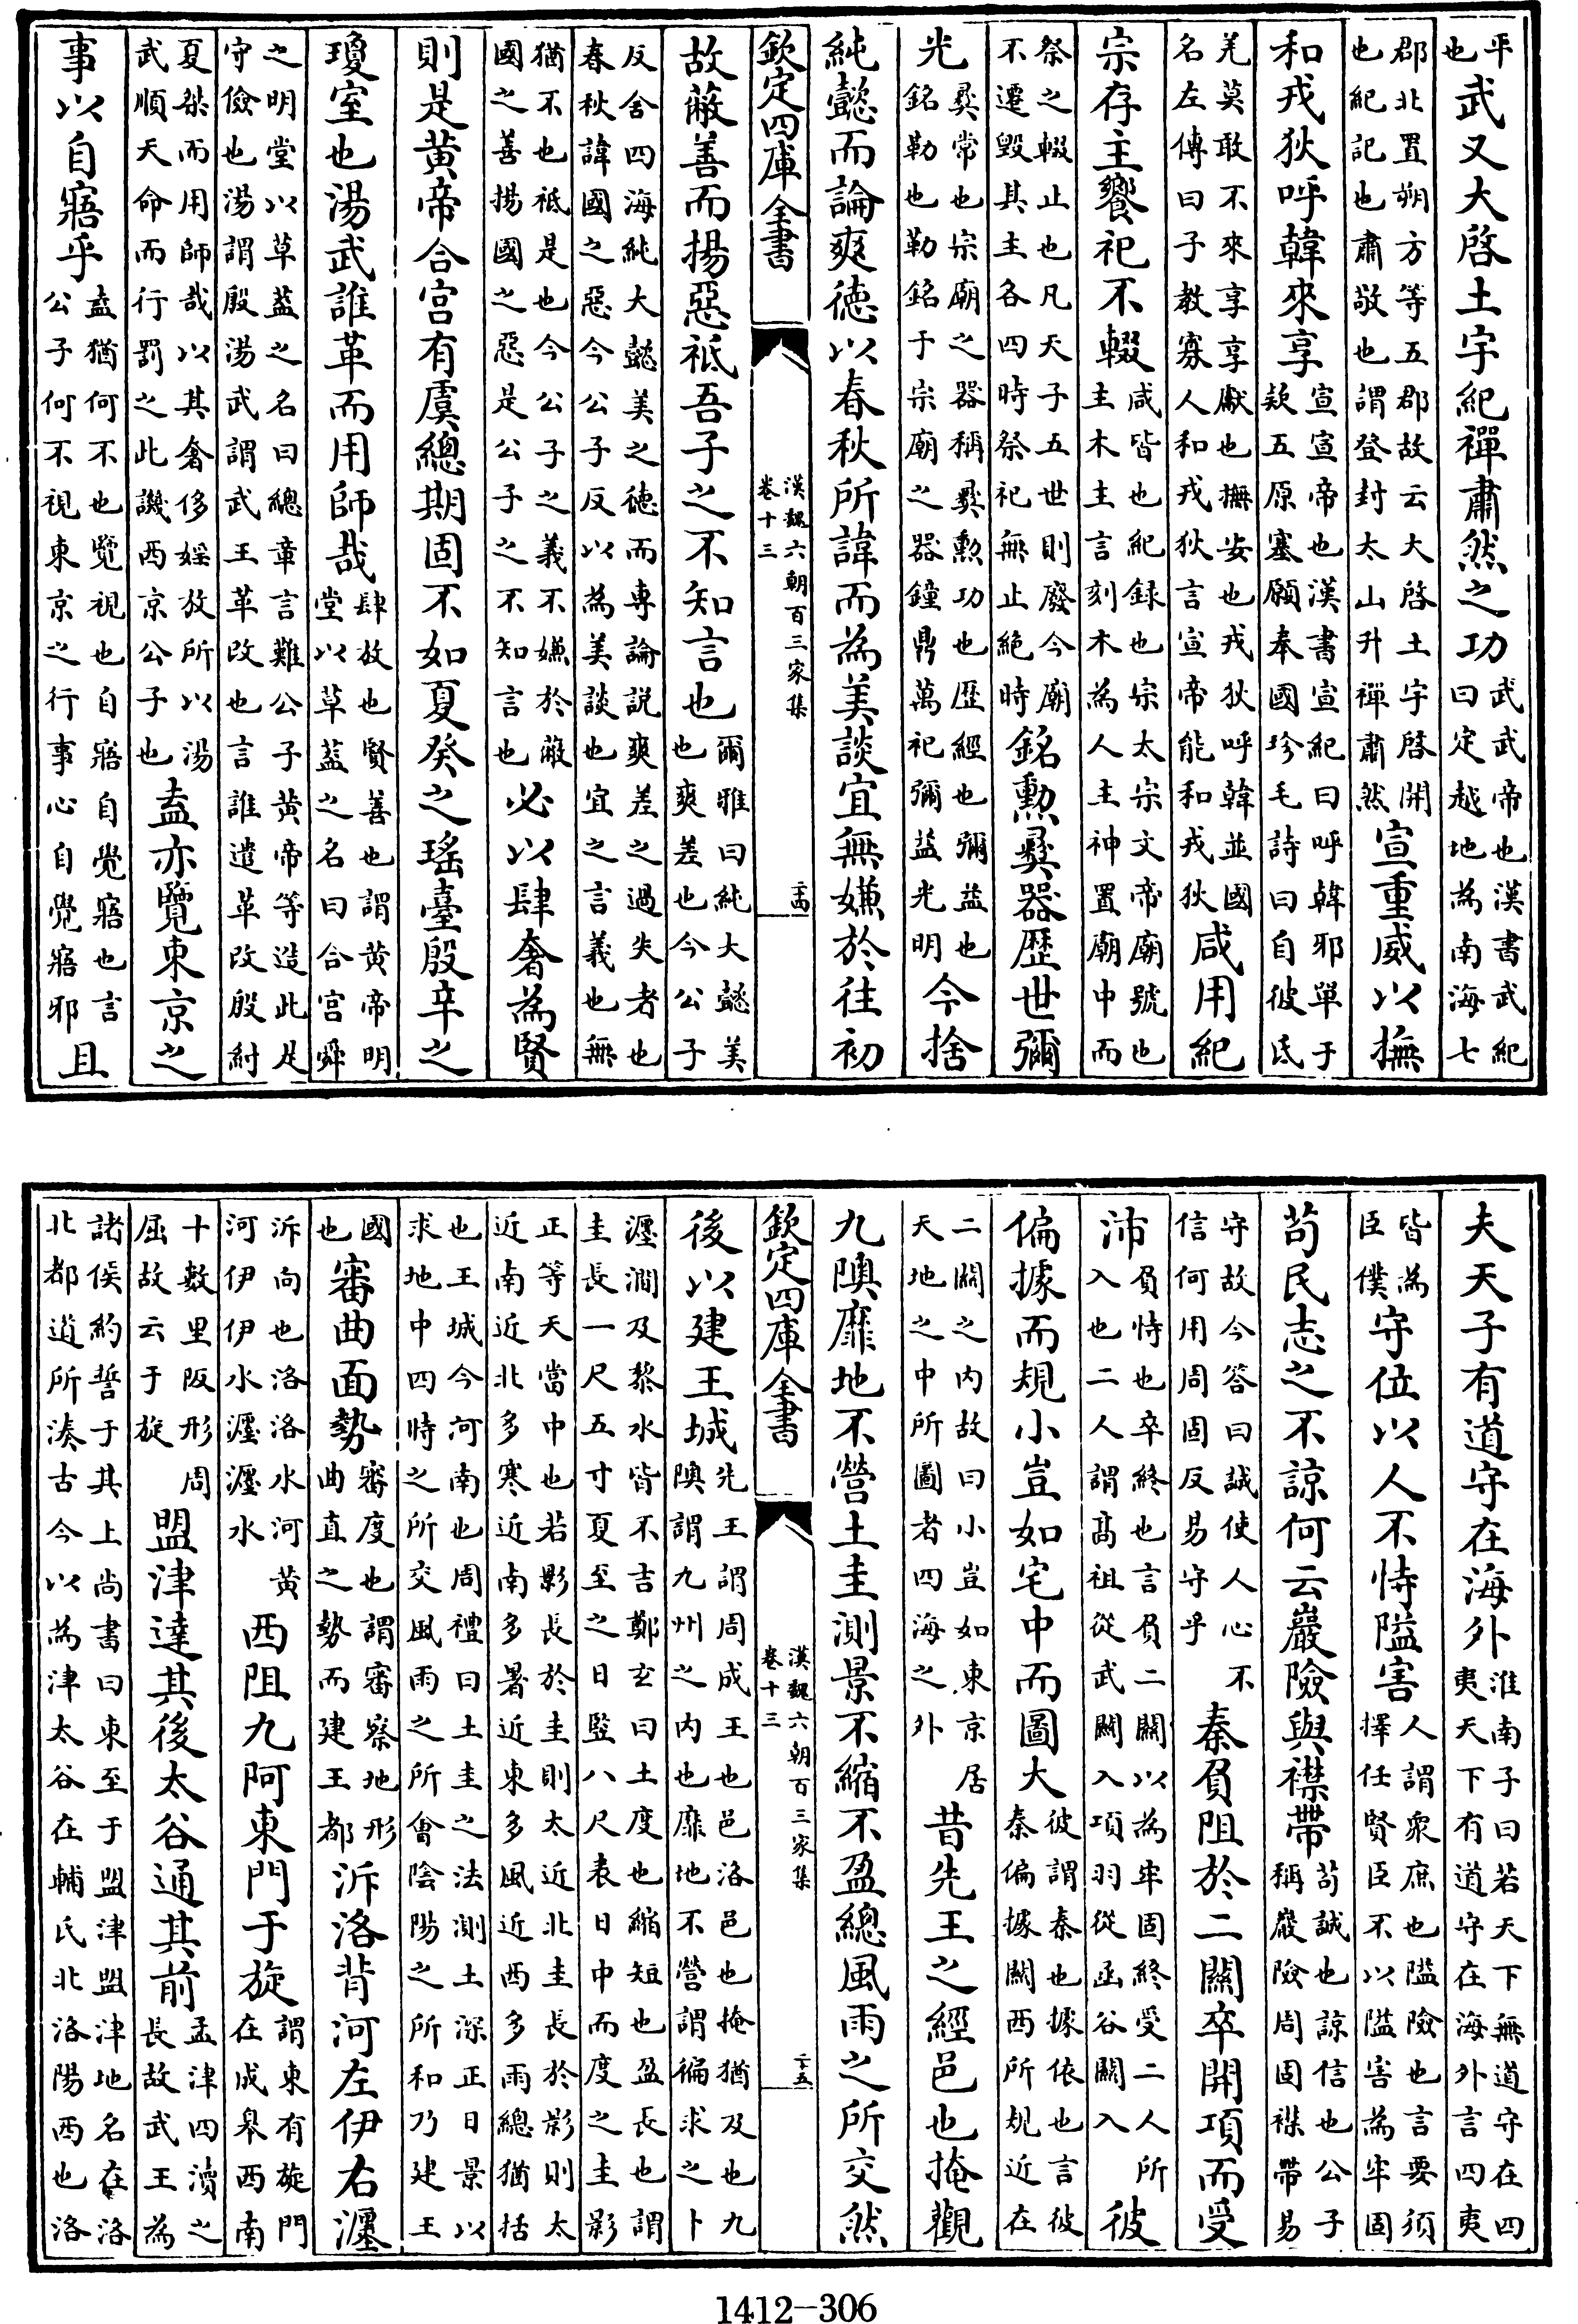 平也武又大啓土宇紀禪肅然之功武武帝也漢書武紀曰定越地為南海七
郡北置朔方等五郡故云大啓土宇啓開也紀記也肅敬也謂登封太山升禪肅然宣重威以撫
和戎狄呼韓來享宣宣帝也漢書宣紀曰呼韓邪單于款五原塞願奉國珍毛詩曰自彼氐
羌莫敢不來享享獻也撫安也戎狄呼韓並國名左傳曰子教寡人和戎狄言宣帝能和戎狄咸用紀
宗存主饗祀不輟咸皆也紀録也宗太宗文帝廟號也主木主言刻木為人主神置廟中而
祭之輟止也凡天子五世則廢今廟不遷毀其主各四時祭祀無止絶時銘勲彛器歴世彌
光彛常也宗廟之器稱彛勲功也歴經也彌益也銘勒也勒銘于宗廟之器鐘鼎萬祀彌益光明今捨
純懿而論爽徳以春秋所諱而為美談宜無嫌於往初
欽定四庫全書 漢魏六朝百三家集 卷十三 二十四
故蔽善而揚惡祗吾子之不知言也爾雅曰純大懿美也爽差也今公子
反舍四海純大懿美之徳而専論説爽差之過失者也春秋諱國之惡今公子反以為美談也宜之言義也無
猶不也祗是也今公子之義不嫌於蔽國之善揚國之惡是公子之不知言也必以肆奢為賢
則是黄帝合宫有虞總期固不如夏癸之瑤臺殷辛之
瓊室也湯武誰革而用師哉肆放也賢善也謂黄帝明堂以草葢之名曰合宫舜
之明堂以草葢之名曰總章言難公子黄帝等造此是守儉也湯謂殷湯武謂武王革改也言誰遣革改殷紂
夏桀而用師哉以其奢侈婬放所以湯武順天命而行罰之此譏西京公子也盍亦覽東京之
事以自寤乎盍猶何不也覽視也自寤自覺寤也言公子何不視東京之行事心自覺寤邪且
夫天子有道守在海外淮南子曰若天下無道守在四夷天下有道守在海外言四夷
皆為臣僕守位以人不恃隘害人謂衆庶也隘險也言要須擇任賢臣不以隘害為牢固
苟民志之不諒何云巖險與襟帶苟誠也諒信也公子稱巖險周固襟帶易
守故今答曰誠使人心不信何用周固反易守乎秦負阻於二關卒開項而受
沛負恃也卒終也言負二關以為牢固終受二人所入也二人謂髙祖從武關入項羽從函谷關入彼
偏據而規小豈如宅中而圖大彼謂秦也據依也言彼秦偏據關西所規近在
二關之内故曰小豈如東京居天地之中所圖者四海之外昔先王之經邑也掩觀
九隩靡地不營土圭測景不縮不盈總風雨之所交然
欽定四庫全書 漢魏六朝百三家集 卷十三 二十五
後以建王城先王謂周成王也邑洛邑也掩猶及也九隩謂九州之内也靡地不營謂徧求之卜
瀍澗及黎水皆不吉鄭玄曰土度也縮短也盈長也謂圭長一尺五寸夏至之日監八尺表日中而度之圭影
正等天當中也若影長於圭則太近北圭長於影則太近南近北多寒近南多暑近東多風近西多雨總猶括
也王城今河南也周禮曰土圭之法測土深正日景以求地中四時之所交風雨之所會陰陽之所和乃建王
國也審曲面勢審度也謂審察地形曲直之勢而建王都泝洛背河左伊右瀍
泝向也洛洛水河黄河伊伊水瀍瀍水西阻九阿東門于旋謂東有旋門在成皐西南
十數里阪形周屈故云于旋盟津達其後太谷通其前孟津四瀆之長故武王為
諸侯約誓于其上尚書曰東至于盟津盟津地名在洛北都道所湊古今以為津太谷在輔氏北洛陽西也洛
1412—306